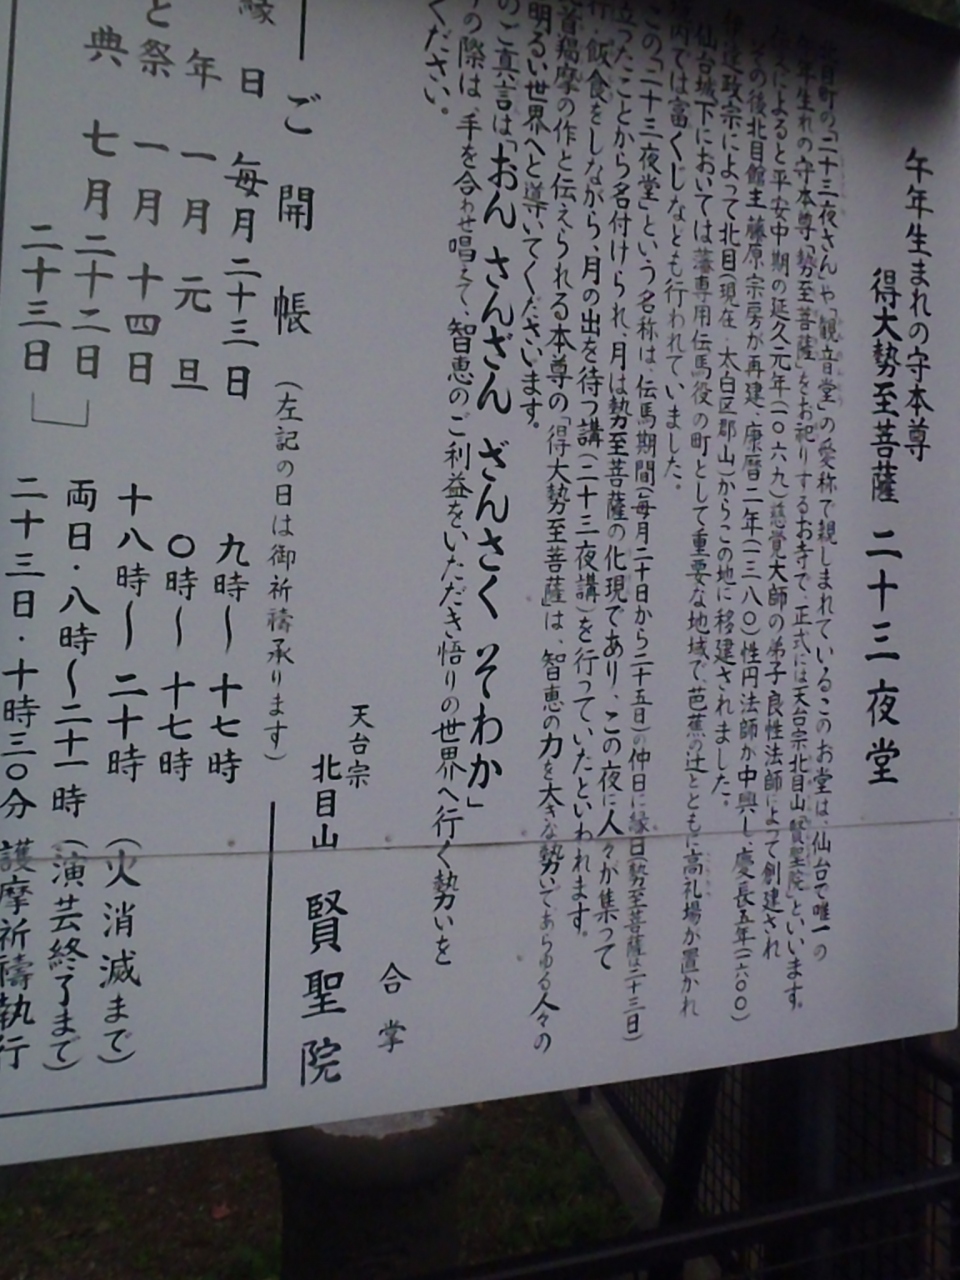 午年生まれの守本尊
得大勢至菩薩 二十三夜堂
北目町の「二十三夜さん」や「観音堂」の愛称で親しまれているこのお堂は、仙台で唯一の
午年生れの守本尊「勢至菩薩」をお祀りするお寺で、正式には天台宗北目山「賢聖院」といいます。
によると平安中期の延久元年(一〇六九)慈覚大師の弟子良性法師によって創建され
その後北目館主 藤原宗房が再建、康暦二年(一三八〇)性円法師が中興し、慶長五年(一六〇〇)
伊達政宗によって北目(現在、太白区郡山)からこの地に移建されました。
仙台城下においては藩専用伝馬役の町として重要な地域で、芭蕉の辻とともに高札場が置かれ
境内では富くじなども行われていました。
この「二十三夜堂」という名称は、伝馬期間(毎月二十日から二十五日)の仲日に縁日(勢至菩薩は二十三日)
立ったことから名付けられ、月は勢至菩薩の化現であり、この夜に人々が集って
行・飯食をしながら、月の出を待つ講(二十三夜講)を行っていたといわれます。
首羯摩の作と伝えられる本尊の「得大勢至菩薩」は、智恵の力を大きな勢いであらゆる人々の
明るい世界へと導いてくださいます。
のご真言は「おん さんざん ざんさく そわか」
の際は、手を合わせ唱えて、智恵のご利益をいただき悟りの世界へ行く勢いを
ください。
合掌
天台宗
北目山 賢聖院
ご開帳 (左記の日は御祈禱承ります)
縁日 毎月二十三日 九時〜十七時
年 一月元旦 〇時〜十七時
と祭 一月十四日 十八時〜二十時 (火消滅まで)
典 七月二十二日 両日・八時〜二十一時 (演芸終了まで)
二十三日 二十三日・十時三〇分 護摩祈禱執行